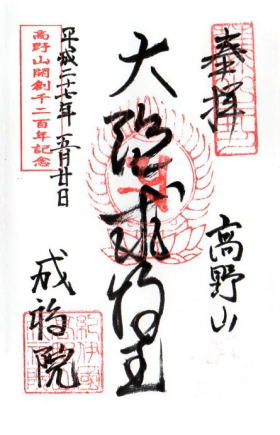 奉拝
高野山
大随求明王
平成二十七年 五月廿日
高野山開創千二百年記念
成福院